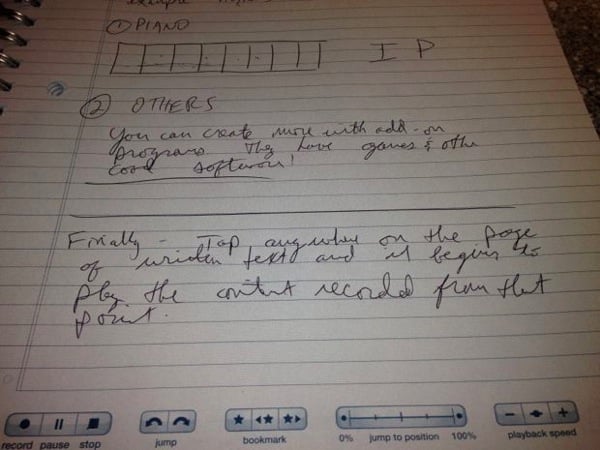 ① PIANO
I P
② OTHERS
You can create more with add-on
programs. They have games & other
Cool software!
Finally - Tap anywhere on the page
of written text and it begins to
play the content recorded from that
point.
record pause stop
jump
bookmark
0% jump to position 100%
playback speed